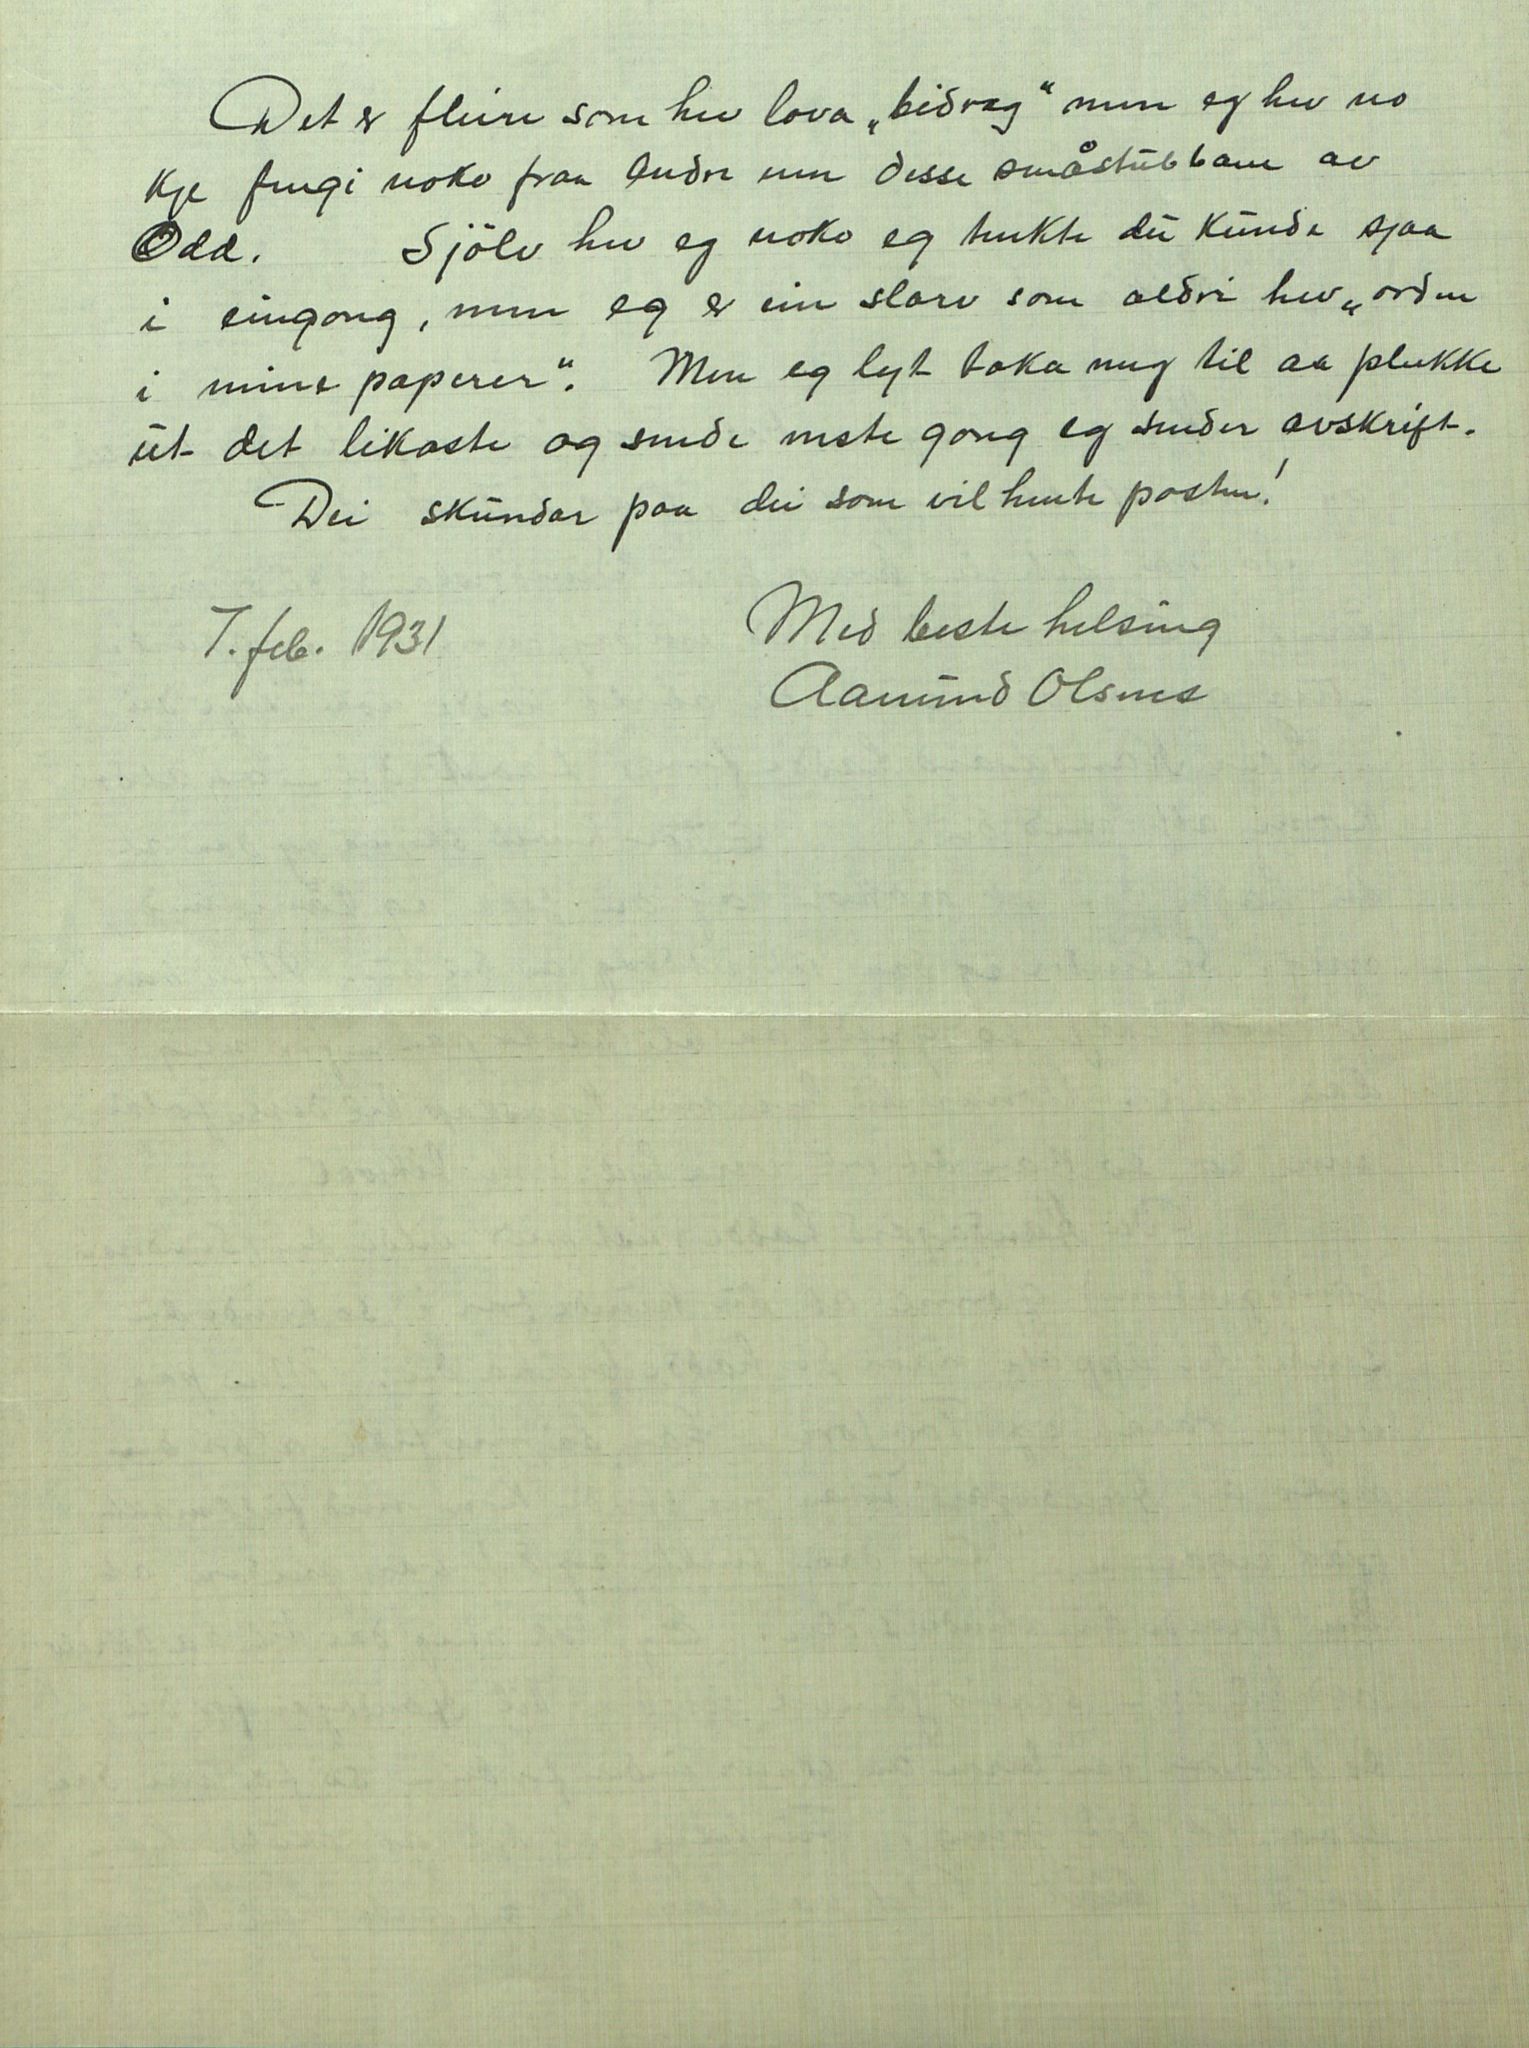 Det er fleire som hev lova „bidrag“ men eg hev no
kje fengi noko fraa andre enn desse småstubbane av
Odd. Sjölv hev eg noko eg tenkte du kunde sjaa
i eingong, men eg er ein slarv som aldri hev „orden
i mine papirer“. Men eg lyt taka meg til aa plukke
ut det likaste og sende neste gong eg sender avskrift.
Dei skundar paa dei som vil hente posten!
7. feb. 1931
Med beste helsing
Aamund Olsnes